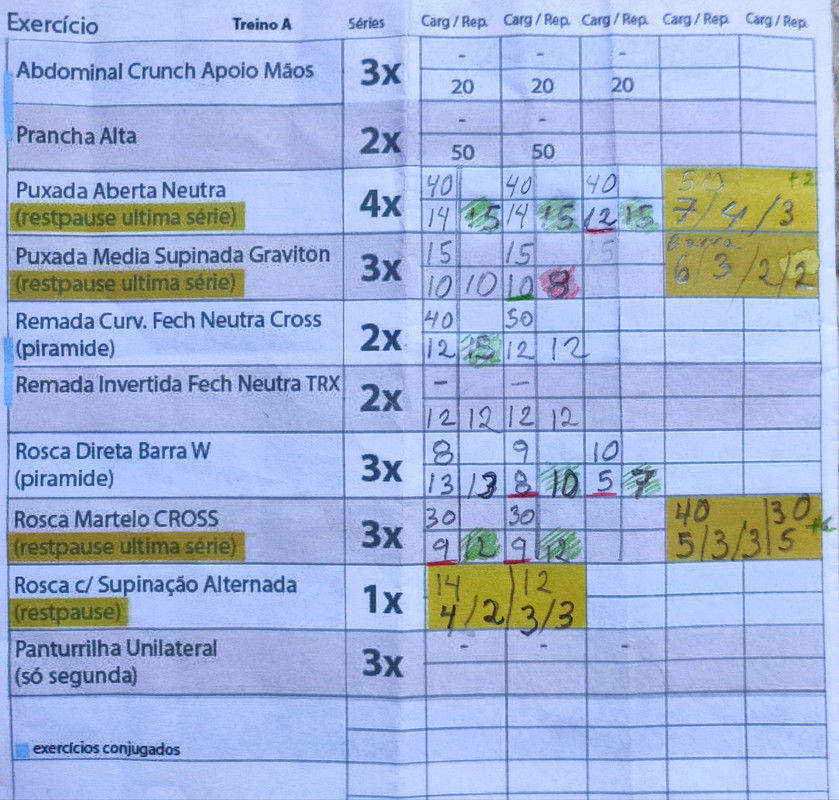 Exercício Treino A Séries Carg / Rep. Carg / Rep. Carg / Rep. Carg / Rep. Carg / Rep.
- - -
Abdominal Crunch Apoio Mãos 3x
20 20 20
- -
Prancha Alta 2x
50 50
Puxada Aberta Neutra 40 40 40 50 +2
4x
(restpause ultima série) 14 15 14 15 12 15 7/4/3
Puxada Media Supinada Graviton 15 15 15 Barra
3x
(restpause ultima série) 10 10 10 8 6/3/2/2
Remada Curv. Fech Neutra Cross 40 50
2x
(piramide) 12 15 12 12
Remada Invertida Fech Neutra TRX - -
2x
12 12 12 12
Rosca Direta Barra W 8 9 10
3x
(piramide) 13 13 8 10 5 7
Rosca Martelo CROSS 30 30 40 | 30
3x
(restpause ultima série) 9 12 9 12 5/3/3|5
Rosca c/ Supinação Alternada 14 | 12
1x
(restpause) 4/2/3/3
Panturrilha Unilateral - - -
3x
(só segunda)
exercícios conjugados